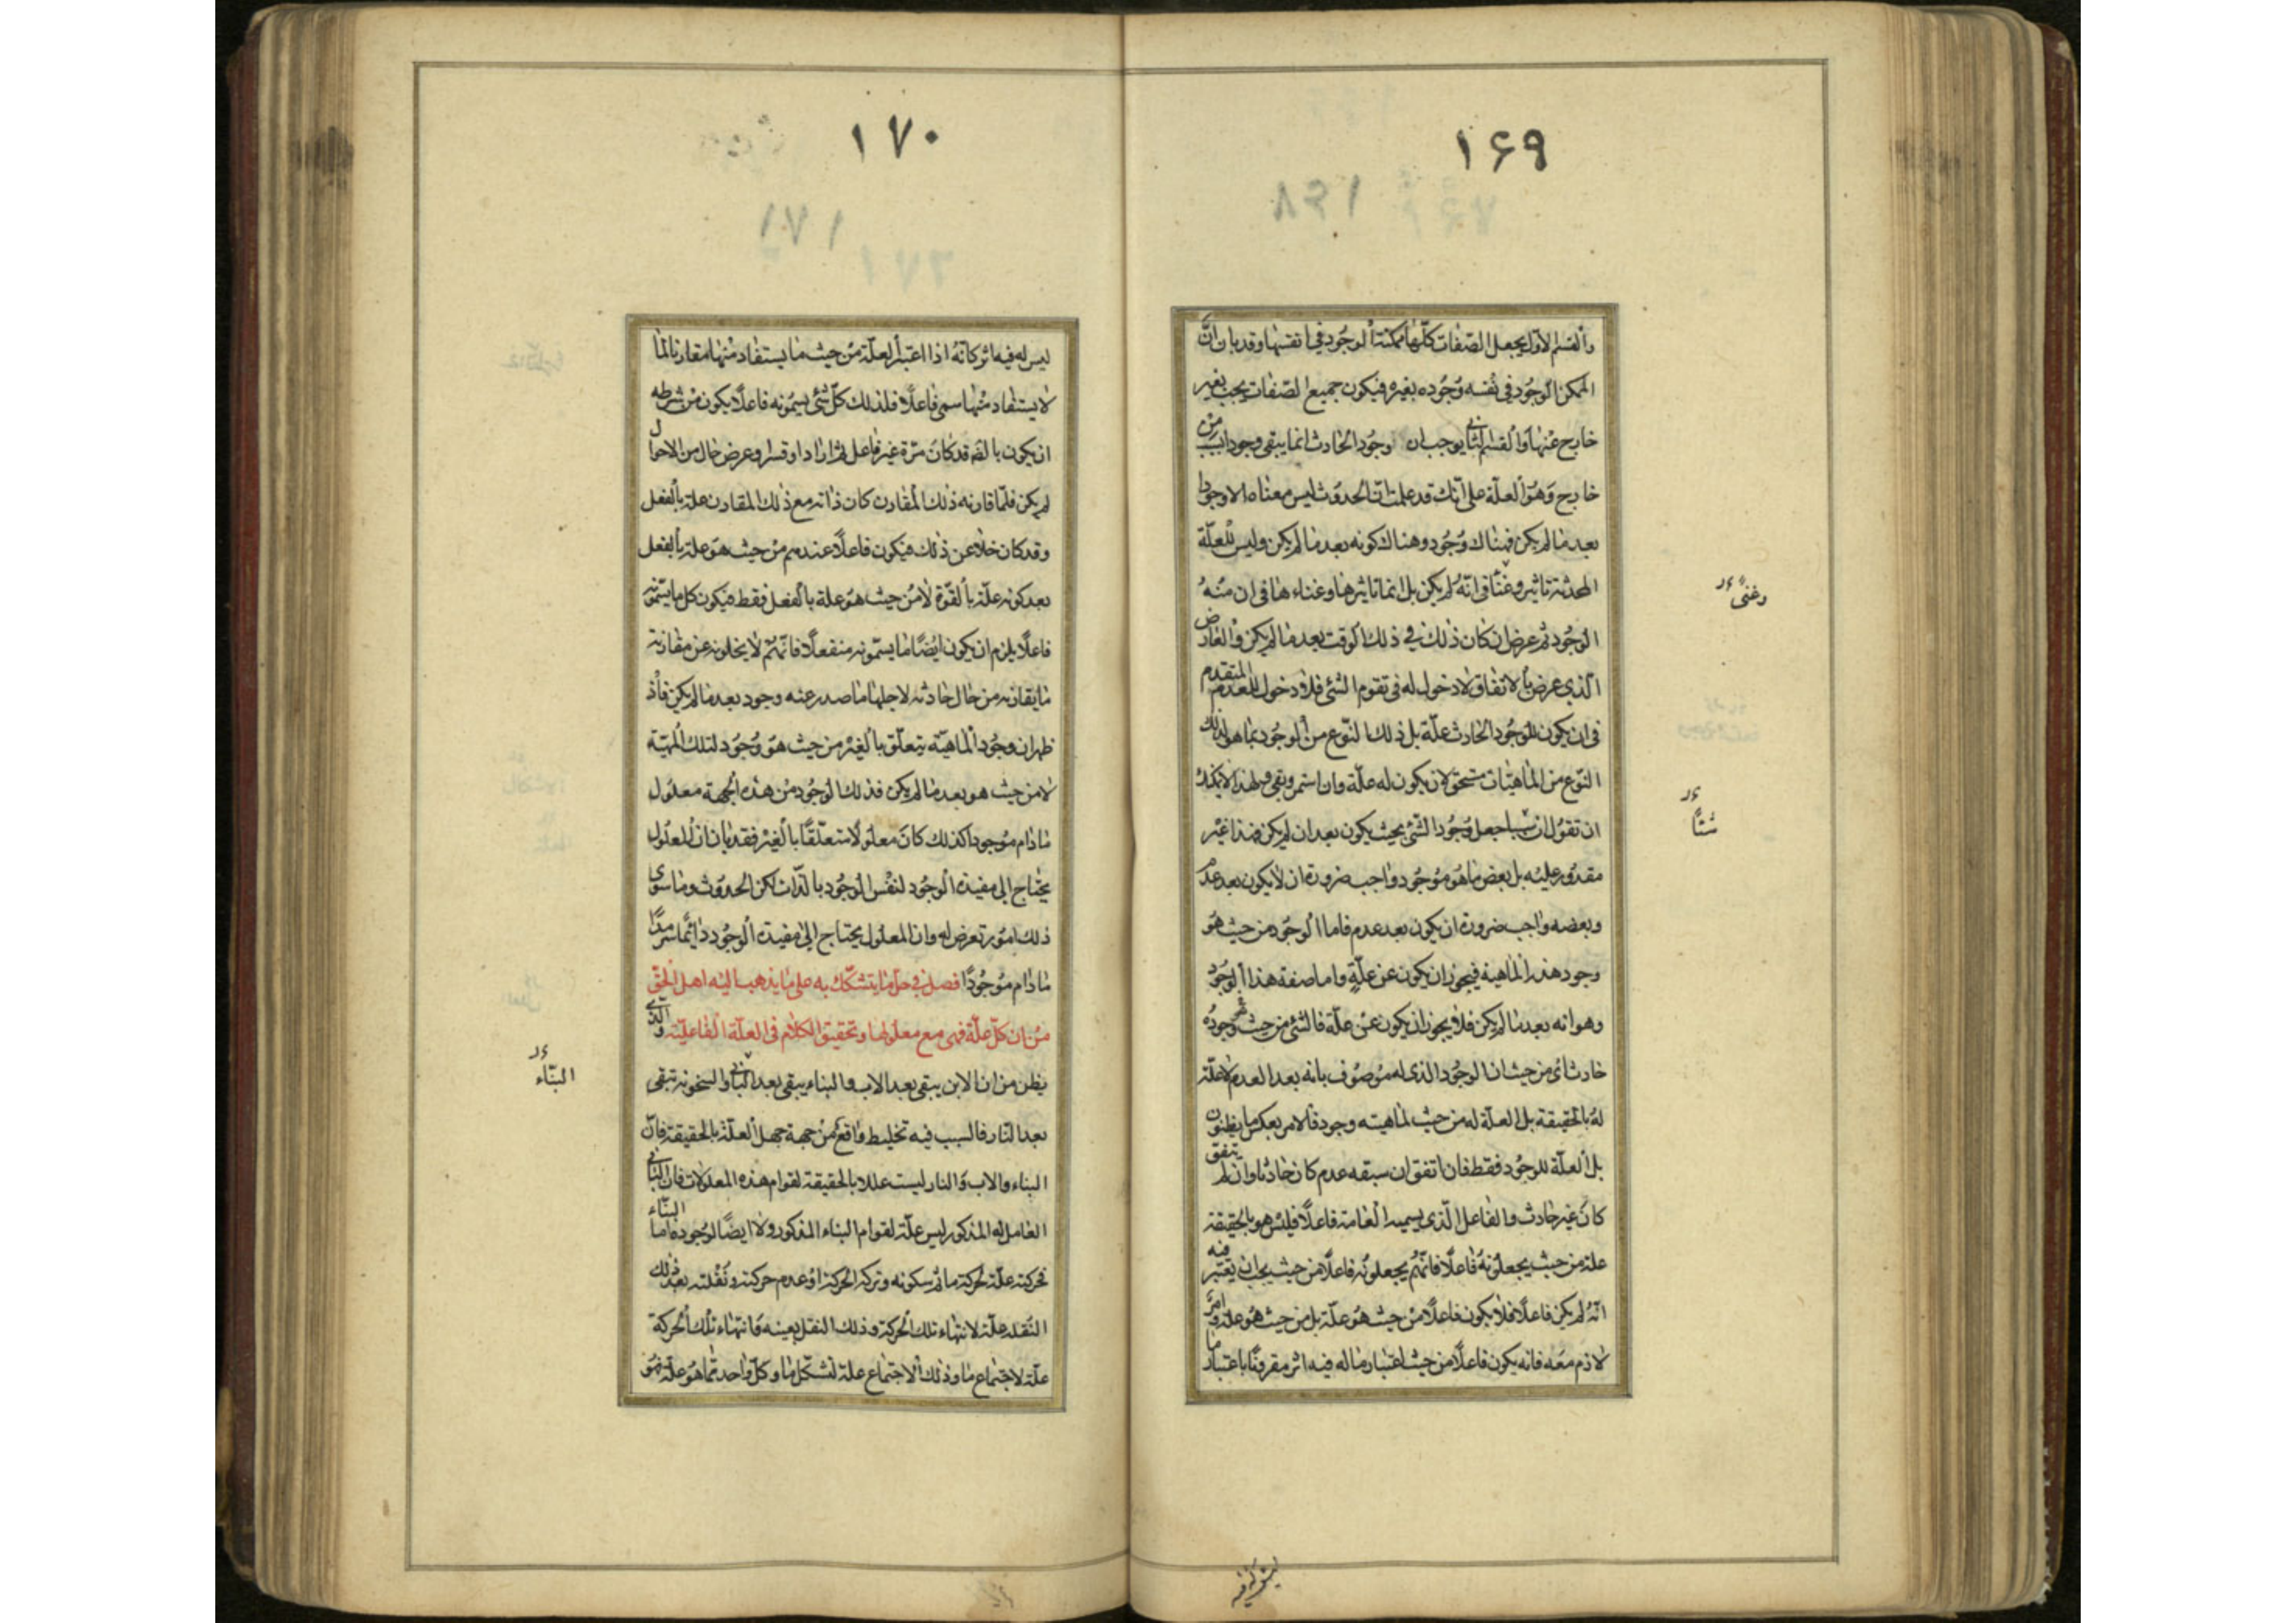 ١۶٩
والقسم الاول يجعل الصفات كلها ممكنة الوجود في انفسها وقد بان ان
الممكن الوجود في نفسه وجوده بغيره فيكون جميع الصفات يجب بغير
خارج عنها والقسم الثاني يوجب ان وجود الحادث انما يبقى وجودا بسبب من
خارج وهو العلة على انك قد علمت ان الحدوث ليس معناه الا وجودا
بعد ما لم يكن فهناك وجود وهناك كونه بعد ما لم يكن وليس للعلة
المحدثة تاثير وغناً في انه لم يكن بل انما تاثيرها وغناءها في ان منه
وغنىً
الوجود ثم عرض ان كان ذلك في ذلك الوقت بعد ما لم يكن والعارض
الذي عرض بالاتفاق لا دخول له في تقوم الشئ فلا دخول للعدم المتقدم
في ان يكون للوجود الحادث علة بل ذلك النوع من الوجود بما هو لذلك
النوع من الماهيات مستحق لان يكون له علة وان استمر وبقى ولهذا لا يمكنك
ان تقول ان شيئا جعل وجود الشئ بحيث يكون بعد ان لم يكن فهذا غير
شيئاً
مقدور عليه بل بعض ما هو موجود واجب ضرورة ان لا يكون بعد عدم
وبعضه واجب ضرورة ان يكون بعد عدم فاما الوجود من حيث هو
وجود هذه الماهية فيجوز ان يكون عن علة واما صفة هذا الوجود
وهو انه بعد ما لم يكن فلا يجوز ان يكون عن علة فالشئ من حيث وجوده
حادث اى من حيث ان الوجود الذى له موصوف بانه بعد العدم لا علة
له بالحقيقة بل العلة له من حيث لماهيته وجود فالامر بعكس ما يظنون
بل العلة للوجود فقط فان اتفق ان سبقه عدم كان حادثا وان لم يتفق
كان غير حادث والفاعل الذي يسميه العامة فاعلا فليس هو بالحقيقة
علة من حيث يجعلونه فاعلا فانهم يجعلونه فاعلا من حيث يجب ان يعتبر فيه
انه لم يكن فاعلا فلا يكون فاعلا من حيث هو علة بل من حيث هو علة وامر
لازم معه فانه يكون فاعلا من حيث اعتبار ما له فيه اثر مقرونا باعتبار ما
١٧٠
ليس له فيه اثر كانه اذا اعتبر العلة من حيث ما يستفاد منها مقارنا لما
لا يستفاد منها سمى فاعلا فلذلك كل شئ يسمونه فاعلا يكون من شرطه
ان يكون بالضرورة قد كان مرة غير فاعل ثم اراد او قسر او عرض حال من الاحوال
لم يكن فلما قارنه ذلك المقارن كان ذاته مع ذلك المقارن علة بالفعل
وقد كان خلا عن ذلك فيكون فاعلا عندهم من حيث هو علة بالفعل
بعد كونه علة بالقوة لا من حيث هو علة بالفعل فقط فيكون كل ما يسمونه
فاعلا يلزم ان يكون ايضا ما يسمونه منفعلا فانهم لا يخلونه عن مقارنة
ما يقارنه من حال حادثه لاجلها ما صدر عنه وجود بعد ما لم يكن فاذ
ظهر ان وجود الماهية يتعلق بالغير من حيث هو وجود لتلك المهية
لا من حيث هو بعد ما لم يكن فذلك الوجود من هذه الجهة معلول
ما دام موجودا كذلك كان معلولا متعلقا بالغير فقد بان ان المعلول
يحتاج الى مفيده الوجود لنفس الوجود بالذات لكن الحدوث وما سوى
ذلك امور تعرض له وان المعلول يحتاج الى مفيده الوجود دائما سرمدا
ما دام موجودا فصل في حل ما يتشكك به على ما يذهب اليه اهل الحق
من ان كل علة فهى مع معلولها وتحقيق الكلام فى العلة الفاعلية والذي
يظن من ان الابن يبقى بعد الاب والبناء يبقى بعد الباني والسخونة تبقى
البنّاء
بعد النار فالسبب فيه تخليط واقع من جهة جهل العلة بالحقيقة فان
البناء والاب والنار ليست عللا بالحقيقة لقوام هذه المعلولات فان الباني
البنّاء
العامل له المذكور ليس علة لقوام البناء المذكور ولا ايضا لوجوده اما
فحركته علة لحركة ما ثم سكونه وتركه الحركة او عدم حركته ونقلته بعد ذلك
النقلة علة لانتهاء تلك الحركة وذلك النقل بعينه وانتهاء تلك الحركة
علة لاجتماع ما وذلك الاجتماع علة لتشكل ما وكل واحد مما هو علة فهو